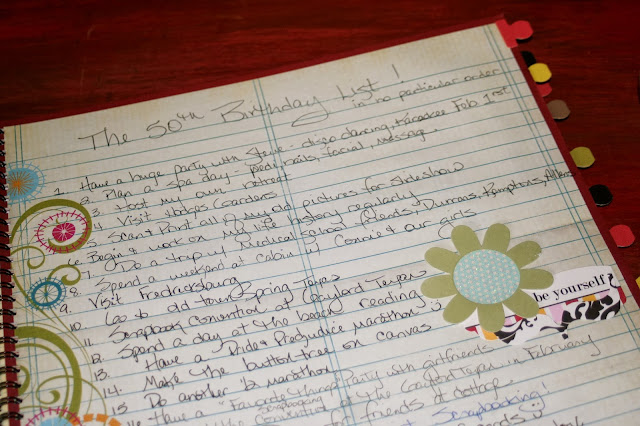 The 50th Birthday List!
in no particular order
1. Have a huge party with Steve - disco dancing, Karaoke Feb 1st
2. Plan a spa day - pedi, nails, facial, massage.
3. Host my own retreat
4. Visit Hodges Gardens
5. Scan & Print all of my old pictures for slideshow
6. Begin & work on my life history regularly
7. Do a trip w/ Medical School friends, Duncans, Hamptons, Allens
8. Spend a weekend at cabin w/ Connie & our girls
9. Visit Fredricksburg
10. Go to old town Spring Texas
11. Scrapbook convention at Gaylord Texan
12. Spend a day at the beach reading
13. Have a Pride & Prejudice marathon
14. Make the button tree on canvas
15. Do another 1/2 marathon
16. Have a "Favorite things" Party with girlfriends
Scrapbooking Convention at the Gaylord Texan in February
for friends at cottage.
Scrapbooking!
friends
be yourself